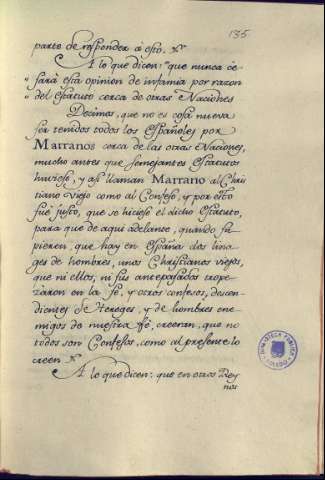 135
parte de responder á esto. &.ª
A lo que dicen: "que nunca ce-
"sará esta opinion de infamia por razon
"del Estatuto cerca de otras Naciones
Decimos, que no es cosa nueva
ser tenidos todos los Españoles por
Marranos cerca de las otras Naciones,
mucho antes que semejantes Estatutos
huviese, y asi llaman Marrano al Chris
tiano viejo como al Confeso, y por esto
fué justo, que se hiciese el dicho Estatuto,
para que de aqui adelante, quando su-
pieren, que hay en España dos lina-
ges de hombres, unos Christianos viejos,
que ni ellos, ni sus antepasados trope-
zaron en la fé, y otros confesos, descen-
dientes de Hereges, y de hombres ene-
migos de nuestra fé, creeràn, que no
todos son Confesos, como al presente lo
creen &.ª
A lo que dicen: que en otros Rey-
nos
BIBLIOTECA PUBLICA
TOLEDO